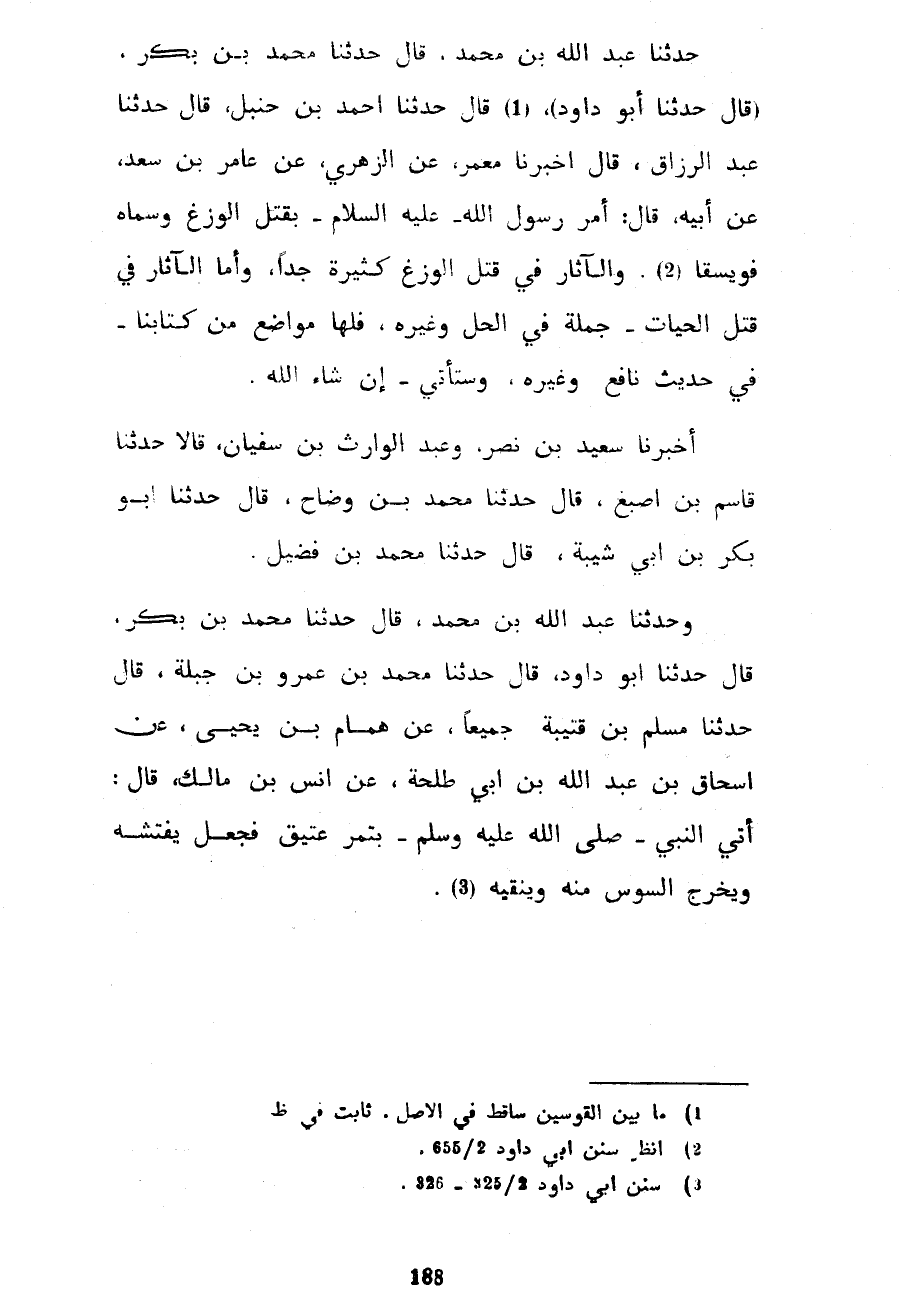 حدثنا عبد الله بن محمد ، قال حدثنا محمد بـن بكر ،
(قال حدثنا أبو داود)، (1) قال حدثنا احمد بن حنبل، قال حدثنا
عبد الرزاق ، قال اخبرنا معمر، عن الزهري، عن عامر بن سعد،
عن أبيه، قال: أمر رسول الله ـ عليه السلام ـ بقتل الوزغ وسماه
فويسقا (2) . والآثار في قتل الوزغ كثيرة جداً، وأما الآثار في
قتل الحيات ـ جملة في الحل وغيره ، فلها مواضع من كتابنا ـ
في حديث نافع وغيره ، وستأتي ـ إن شاء الله .
أخبرنا سعيد بن نصر، وعبد الوارث بن سفيان، قالا حدثنا
قاسم بن اصبغ ، قال حدثنا محمد بــن وضاح ، قال حدثنا ابــو
بكر بن ابي شيبة ، قال حدثنا محمد بن فضيل .
وحدثنا عبد الله بن محمد ، قال حدثنا محمد بن بكر ،
قال حدثنا ابو داود، قال حدثنا محمد بن عمرو بن جبلة ، قال
حدثنا مسلم بن قتيبة جميعاً ، عن همــام بــن يحيــى ، عن
اسحاق بن عبد الله بن ابي طلحة ، عن انس بن مالك، قال :
أتي النبي ـ صلى الله عليه وسلم ـ بتمر عتيق فجعــل يفتشــه
ويخرج السوس منه وينقيه (3) .
1) ما بين القوسين ساقط في الاصل . ثابت في ظ
2) انظر سنن ابي داود 655/2 .
3) سنن ابي داود 325/2 ـ 326 .
188